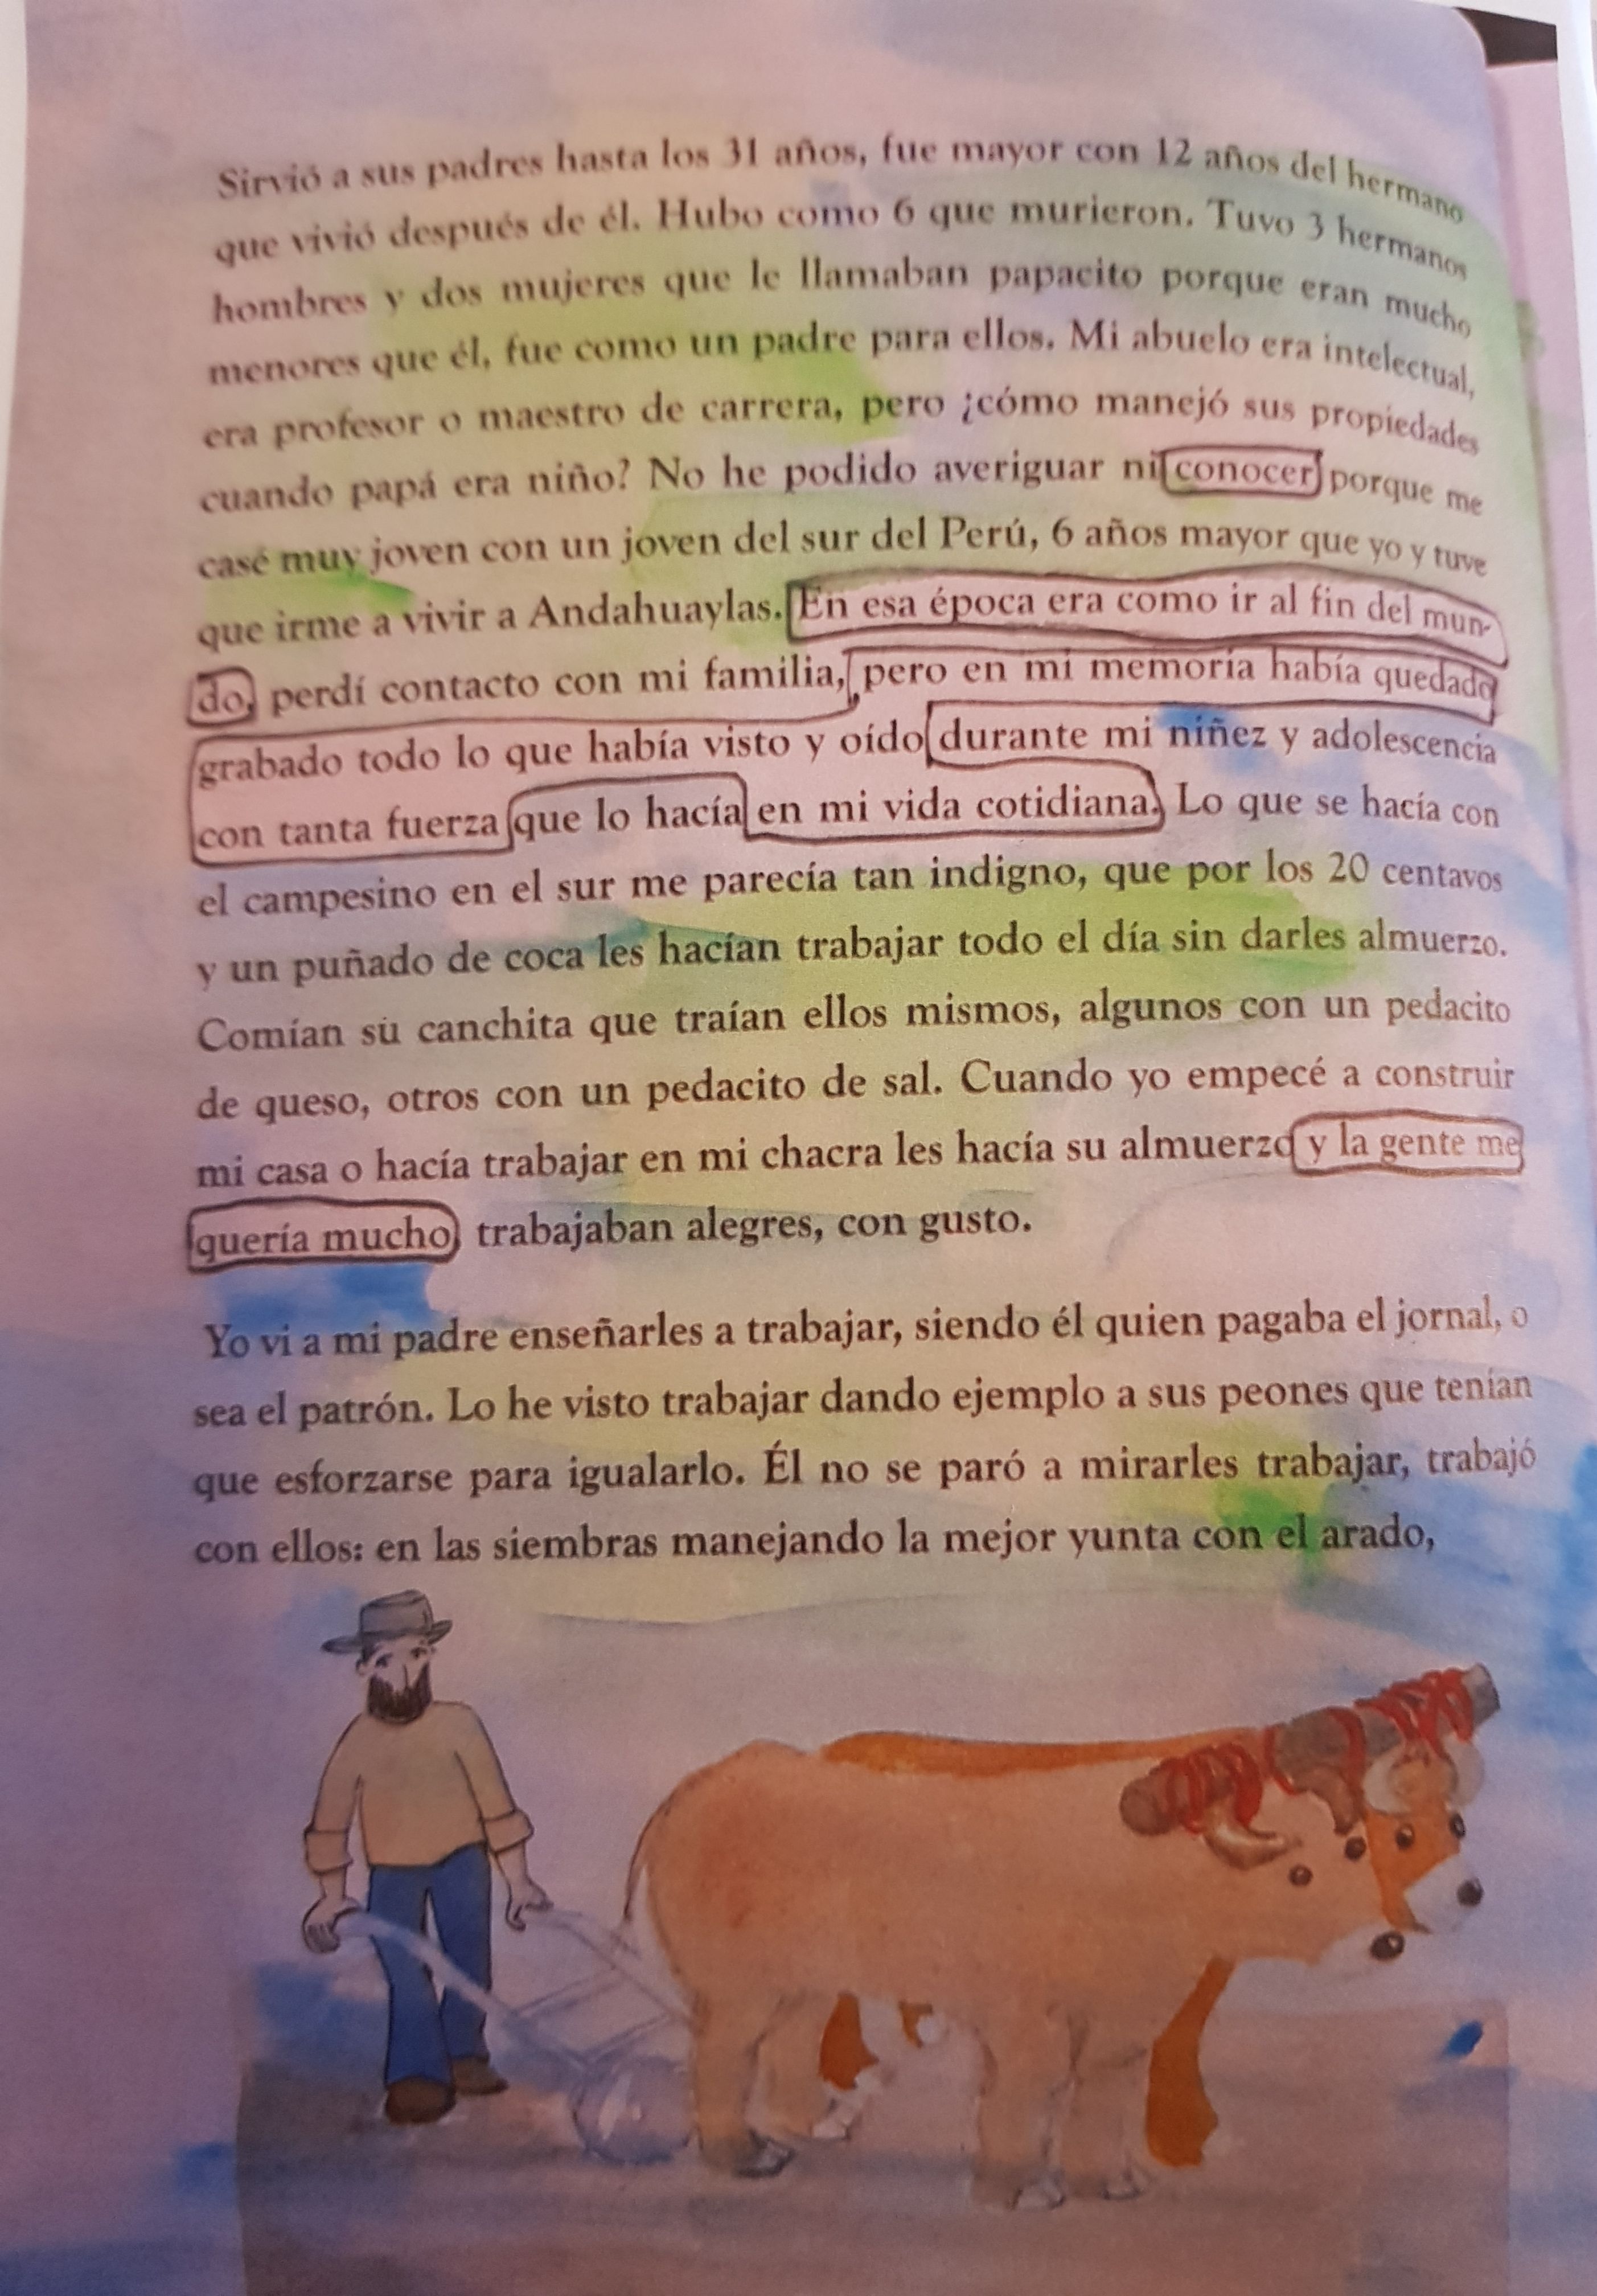 Sirvió a sus padres hasta los 31 años, fue mayor con 12 años del hermano
que vivió después de él. Hubo como 6 que murieron. Tuvo 3 hermanos
hombres y dos mujeres que le llamaban papacito porque eran mucho
menores que él, fue como un padre para ellos. Mi abuelo era intelectual,
era profesor o maestro de carrera, pero ¿cómo manejó sus propiedades
cuando papá era niño? No he podido averiguar ni conocer porque me
casé muy joven con un joven del sur del Perú, 6 años mayor que yo y tuve
que irme a vivir a Andahuaylas. En esa época era como ir al fin del mun-
do, perdí contacto con mi familia, pero en mi memoria había quedado
grabado todo lo que había visto y oído durante mi niñez y adolescencia
con tanta fuerza que lo hacía en mi vida cotidiana. Lo que se hacía con
el campesino en el sur me parecía tan indigno, que por los 20 centavos
y un puñado de coca les hacían trabajar todo el día sin darles almuerzo.
Comían su canchita que traían ellos mismos, algunos con un pedacito
de queso, otros con un pedacito de sal. Cuando yo empecé a construir
mi casa o hacía trabajar en mi chacra les hacía su almuerzo y la gente me
quería mucho, trabajaban alegres, con gusto.
Yo vi a mi padre enseñarles a trabajar, siendo él quien pagaba el jornal, o
sea el patrón. Lo he visto trabajar dando ejemplo a sus peones que tenían
que esforzarse para igualarlo. Él no se paró a mirarles trabajar, trabajó
con ellos: en las siembras manejando la mejor yunta con el arado,